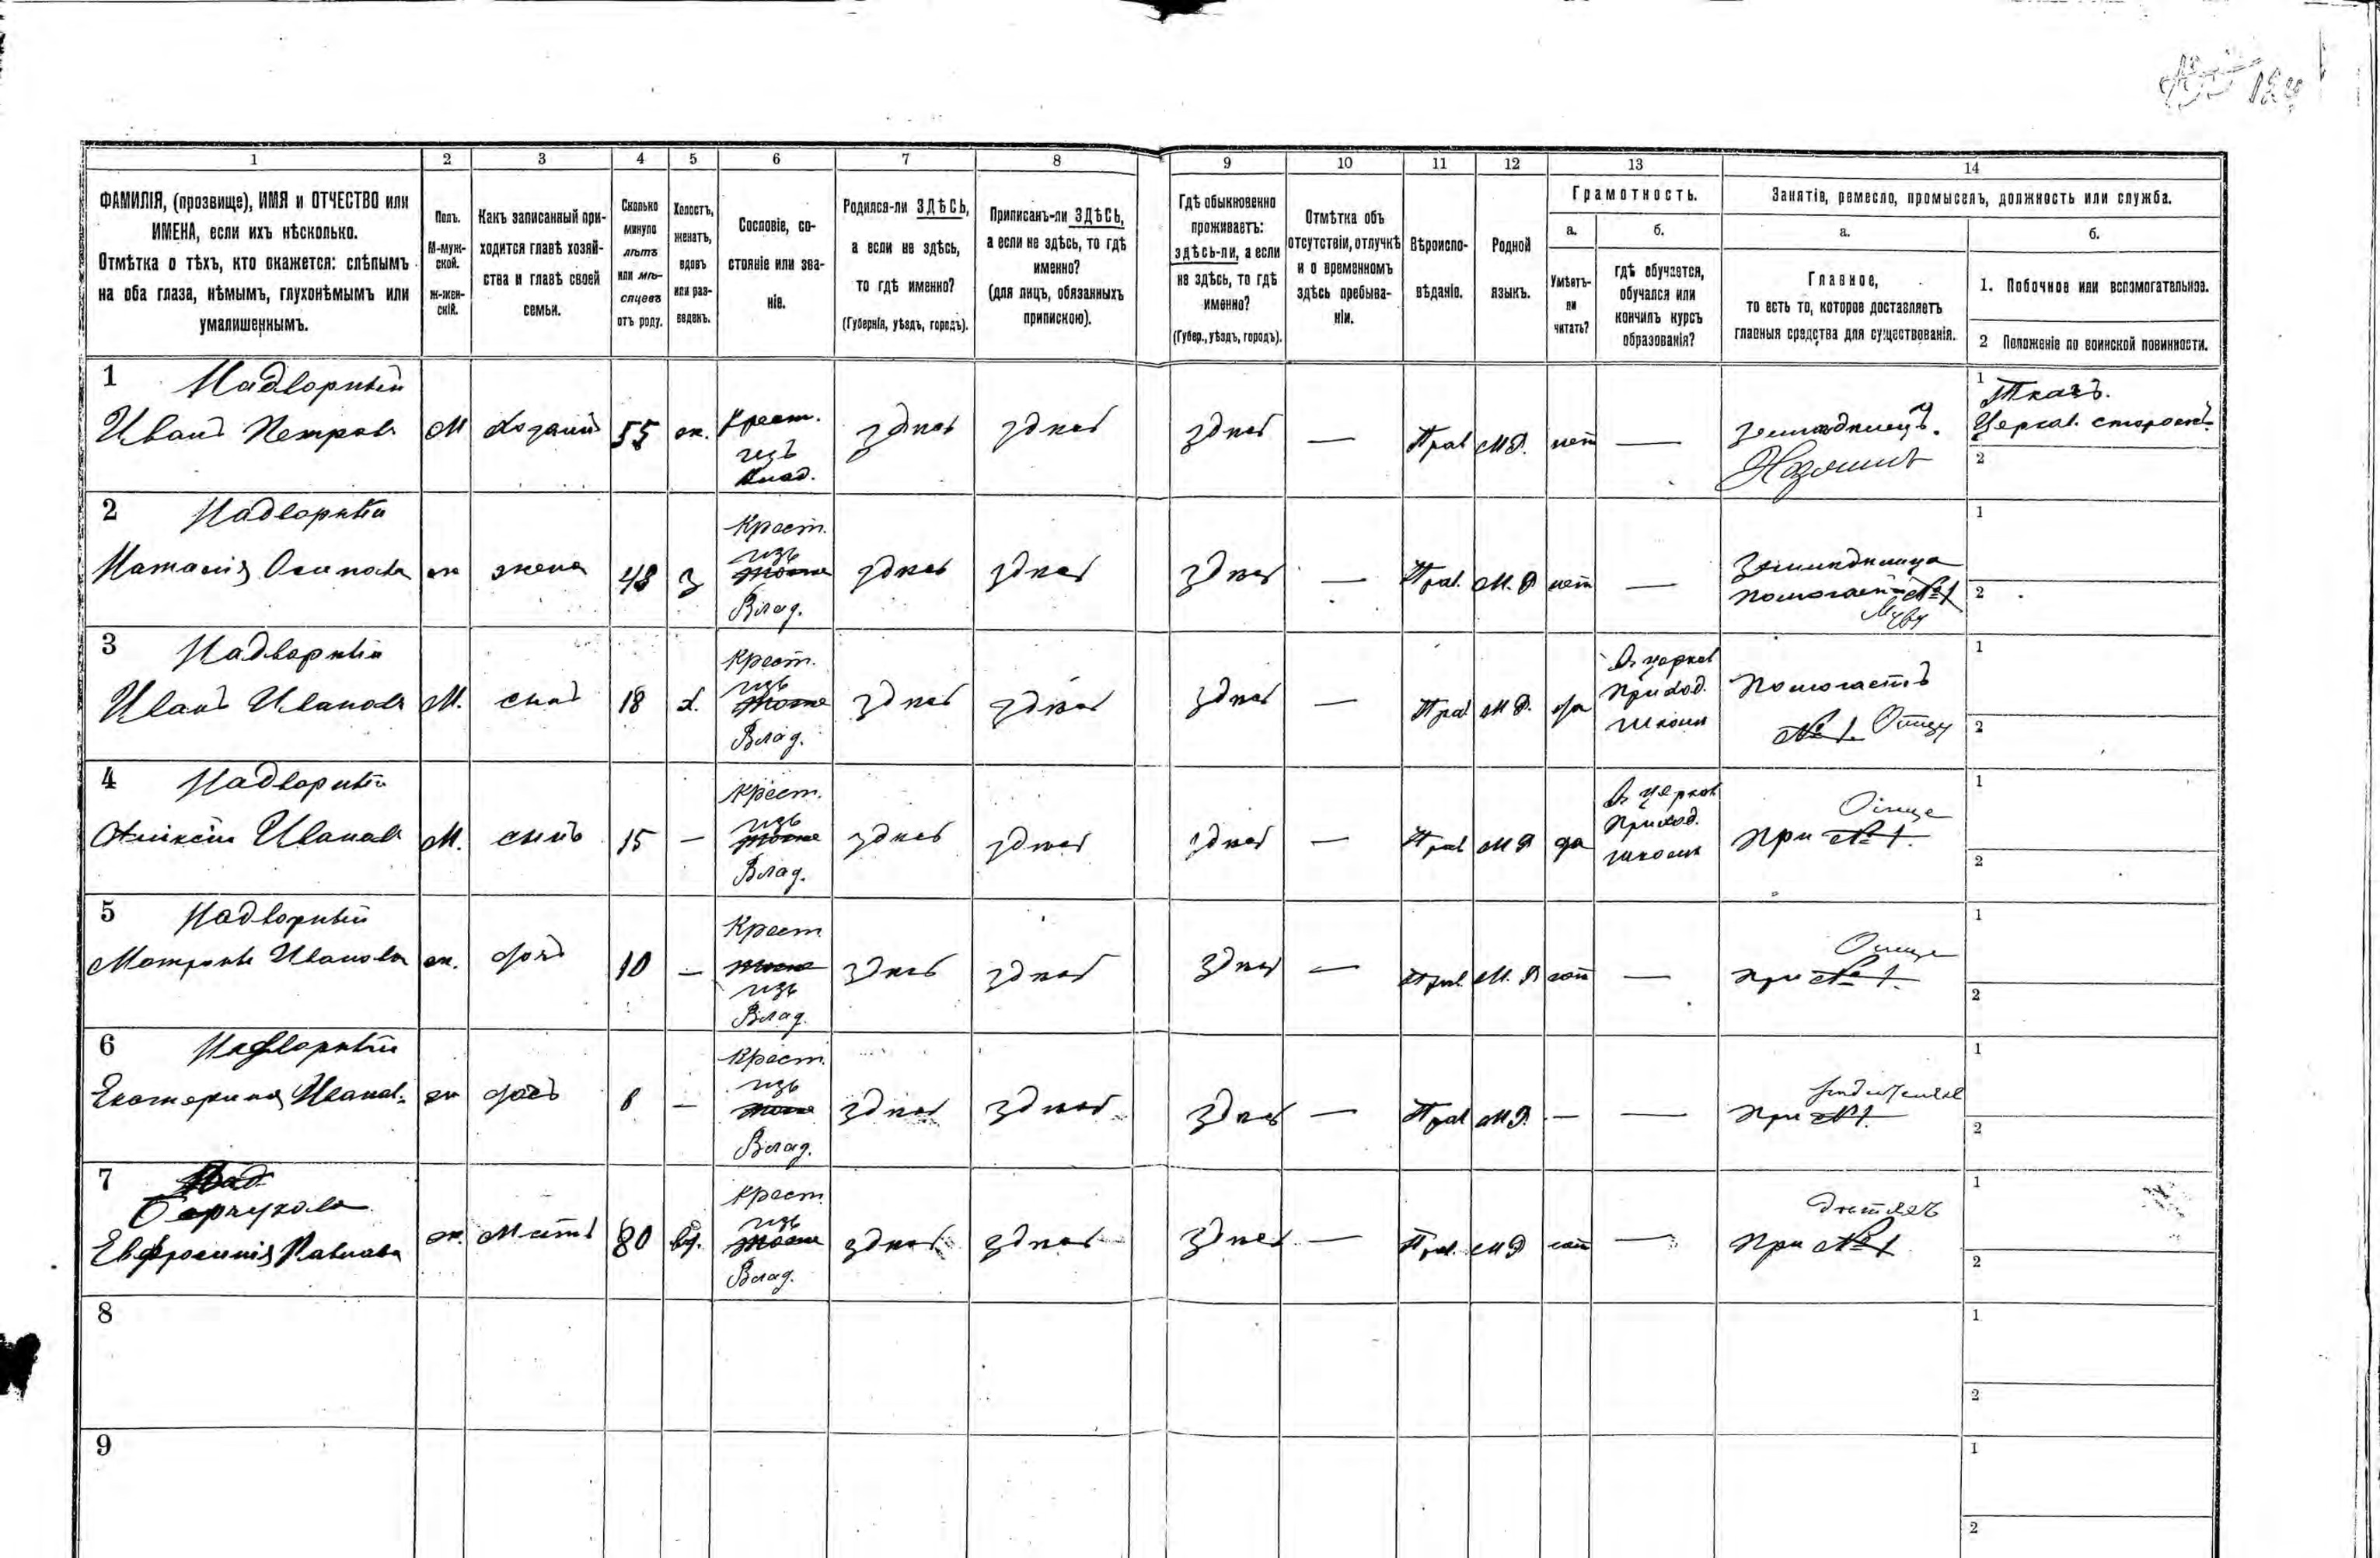 1 2 3 4 5 6 7 8 9 10 11 12 13 14
ФАМИЛІЯ, (прозвище), ИМЯ и ОТЧЕСТВО или
ИМЕНА, если ихъ нѣсколько.
Отмѣтка о тѣхъ, кто окажется: слѣпымъ
на оба глаза, нѣмымъ, глухонѣмымъ или
умалишеннымъ.
Полъ.
М-муж-
ской.
Ж-жен-
скій.
Какъ записанный при-
ходится главѣ хозяй-
ства и главѣ своей
семьи.
Сколько
минуло
лѣтъ
или мѣ-
сяцевъ
отъ роду.
Холостъ,
женатъ,
вдовъ
или раз-
веденъ.
Сословіе, со-
стояніе или зва-
ніе.
Родился-ли ЗДѢСЬ,
а если не здѣсь,
то гдѣ именно?
(Губернія, уѣздъ, городъ).
Приписанъ-ли ЗДѢСЬ,
а если не здѣсь, то гдѣ
именно?
(для лицъ, обязанныхъ
припискою).
Гдѣ обыкновенно
проживаетъ:
здѣсь-ли, а если
не здѣсь, то гдѣ
именно?
(Губер., уѣздъ, городъ).
Отмѣтка объ
отсутствіи, отлучкѣ
и о временномъ
здѣсь пребыва-
ніи.
Вѣроиспо-
вѣданіе.
Родной
языкъ.
Грамотность.
а.
Умѣетъ-
ли
читать?
б.
гдѣ обучается,
обучался или
кончилъ курсъ
образованія?
Занятіе, ремесло, промыселъ, должность или служба.
а.
Главное,
то есть то, которое доставляетъ
главныя средства для существованія.
б.
1. Побочное или вспомогательное.
2 Положеніе по воинской повинности.
1 Надворный
Иванъ Петровъ М Хозяинъ 55 ж. Крест. изъ Влад. здѣсь здѣсь здѣсь — Прав М.Р. нет — Земледѣлецъ. Хозяинъ
1 Ткачъ.
Церков. сторожъ
2
2 Надворный
Наталія Осипова ж жена 48 З Крест. изъ Влад. здѣсь здѣсь здѣсь — Прав. М.Р нет — Земледѣлица помогаетъ №1 Мужу
1
2
3 Надворный
Иванъ Ивановъ М. сынъ 18 х. Крест. изъ Влад. здѣсь здѣсь здѣсь — Прав М.Р. да В церков приход. школѣ Помогаетъ №1. Отцу
1
2
4 Надворный
Алексѣй Ивановъ М. сынъ 15 — Крест. изъ Влад. здѣсь здѣсь здѣсь — Прав М Р да В церков приход. школѣ при №1. Отце
1
2
5 Надворный
Матрона Иванова ж. дочь 10 — Крест изъ Влад. здѣсь здѣсь здѣсь — Прав. М.Р нет — при №1. Отце
1
2
6 Надворный
Екатерина Иванов. ж дочь 8 — Крест. изъ Влад. здѣсь здѣсь здѣсь — Прав М Р. — — при №1. родителяхъ
1
2
7 Над
Евфросинія Павлова ж. Мать 80 вд. Крест. изъ Влад. здѣсь здѣсь здѣсь — Прав. М Р нет — при №1 дѣтяхъ
1
2
8
1
2
9
1
2